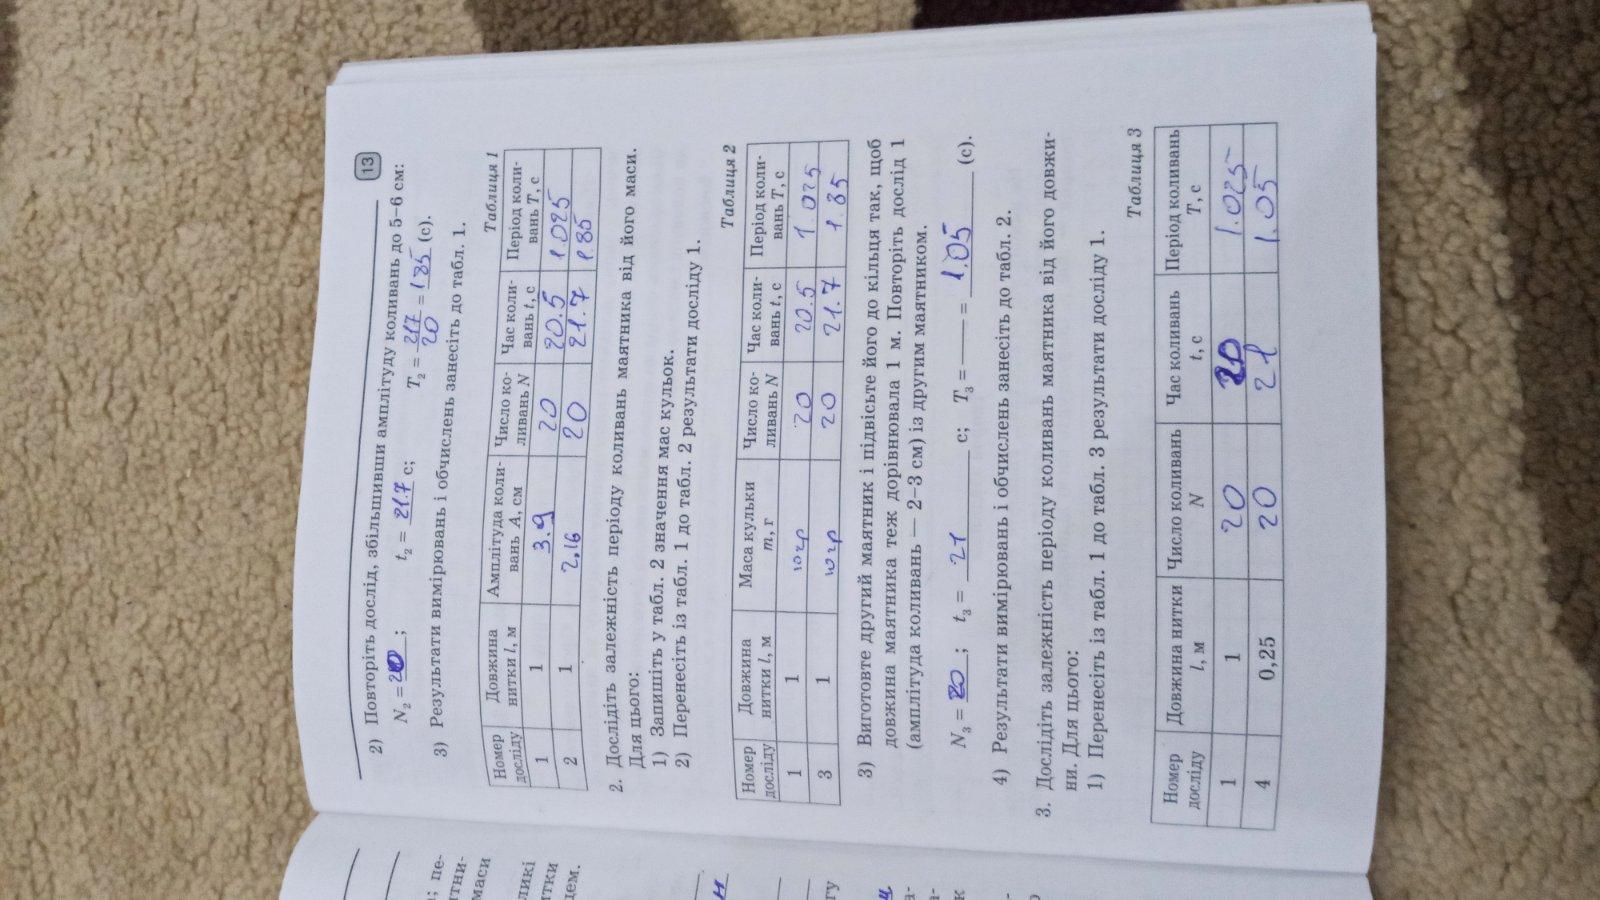 13
2) Повторіть дослід, збільшивши амплітуду коливань до 5–6 см:
N₂ = 20; t₂ = 21.7 с; T₂ = 217/20 = 1 85 (с).
3) Результати вимірювань і обчислень занесіть до табл. 1.
Таблиця 1
Номер досліду | Довжина нитки l, м | Амплітуда коли-вань A, см | Число ко-ливань N | Час коли-вань t, с | Період коли-вань T, с
1 | 1 | 3.9 | 20 | 20.5 | 1.025
2 | 1 | 2.16 | 20 | 21.7 | 1.85
2. Дослідіть залежність періоду коливань маятника від його маси.
Для цього:
1) Запишіть у табл. 2 значення мас кульок.
2) Перенесіть із табл. 1 до табл. 2 результати досліду 1.
Таблиця 2
Номер досліду | Довжина нитки l, м | Маса кульки m, г | Число ко-ливань N | Час коли-вань t, с | Період коли-вань T, с
1 | 1 | 10гр | 20 | 20.5 | 1.025
3 | 1 | 10гр | 20 | 21.7 | 1.85
3) Виготовте другий маятник і підвісьте його до кільця так, щоб
довжина маятника теж дорівнювала 1 м. Повторіть дослід 1
(амплітуда коливань — 2–3 см) із другим маятником.
N₃ = 20; t₃ = 21 с; T₃ = —— = 1.05 (с).
4) Результати вимірювань і обчислень занесіть до табл. 2.
3. Дослідіть залежність періоду коливань маятника від його довжи-
ни. Для цього:
1) Перенесіть із табл. 1 до табл. 3 результати досліду 1.
Таблиця 3
Номер досліду | Довжина нитки l, м | Число коливань N | Час коливань t, с | Період коливань T, с
1 | 1 | 20 | 20 | 1.025
4 | 0,25 | 20 | 21 | 1.05